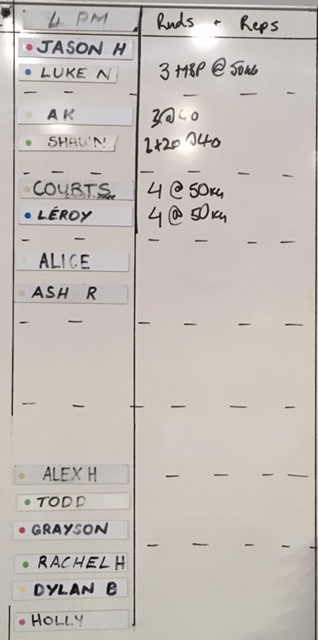 4 PM Rnds + Reps
JASON H
LUKE N 3 HSP @ 50kg
AK 3@40
SHAUN 1+20 @40
COURTS 4 @ 50kg
LÉROY 4 @ 50kg
ALICE
ASH R
ALEX H
TODD
GRAYSON
RACHEL H
DYLAN B
HOLLY